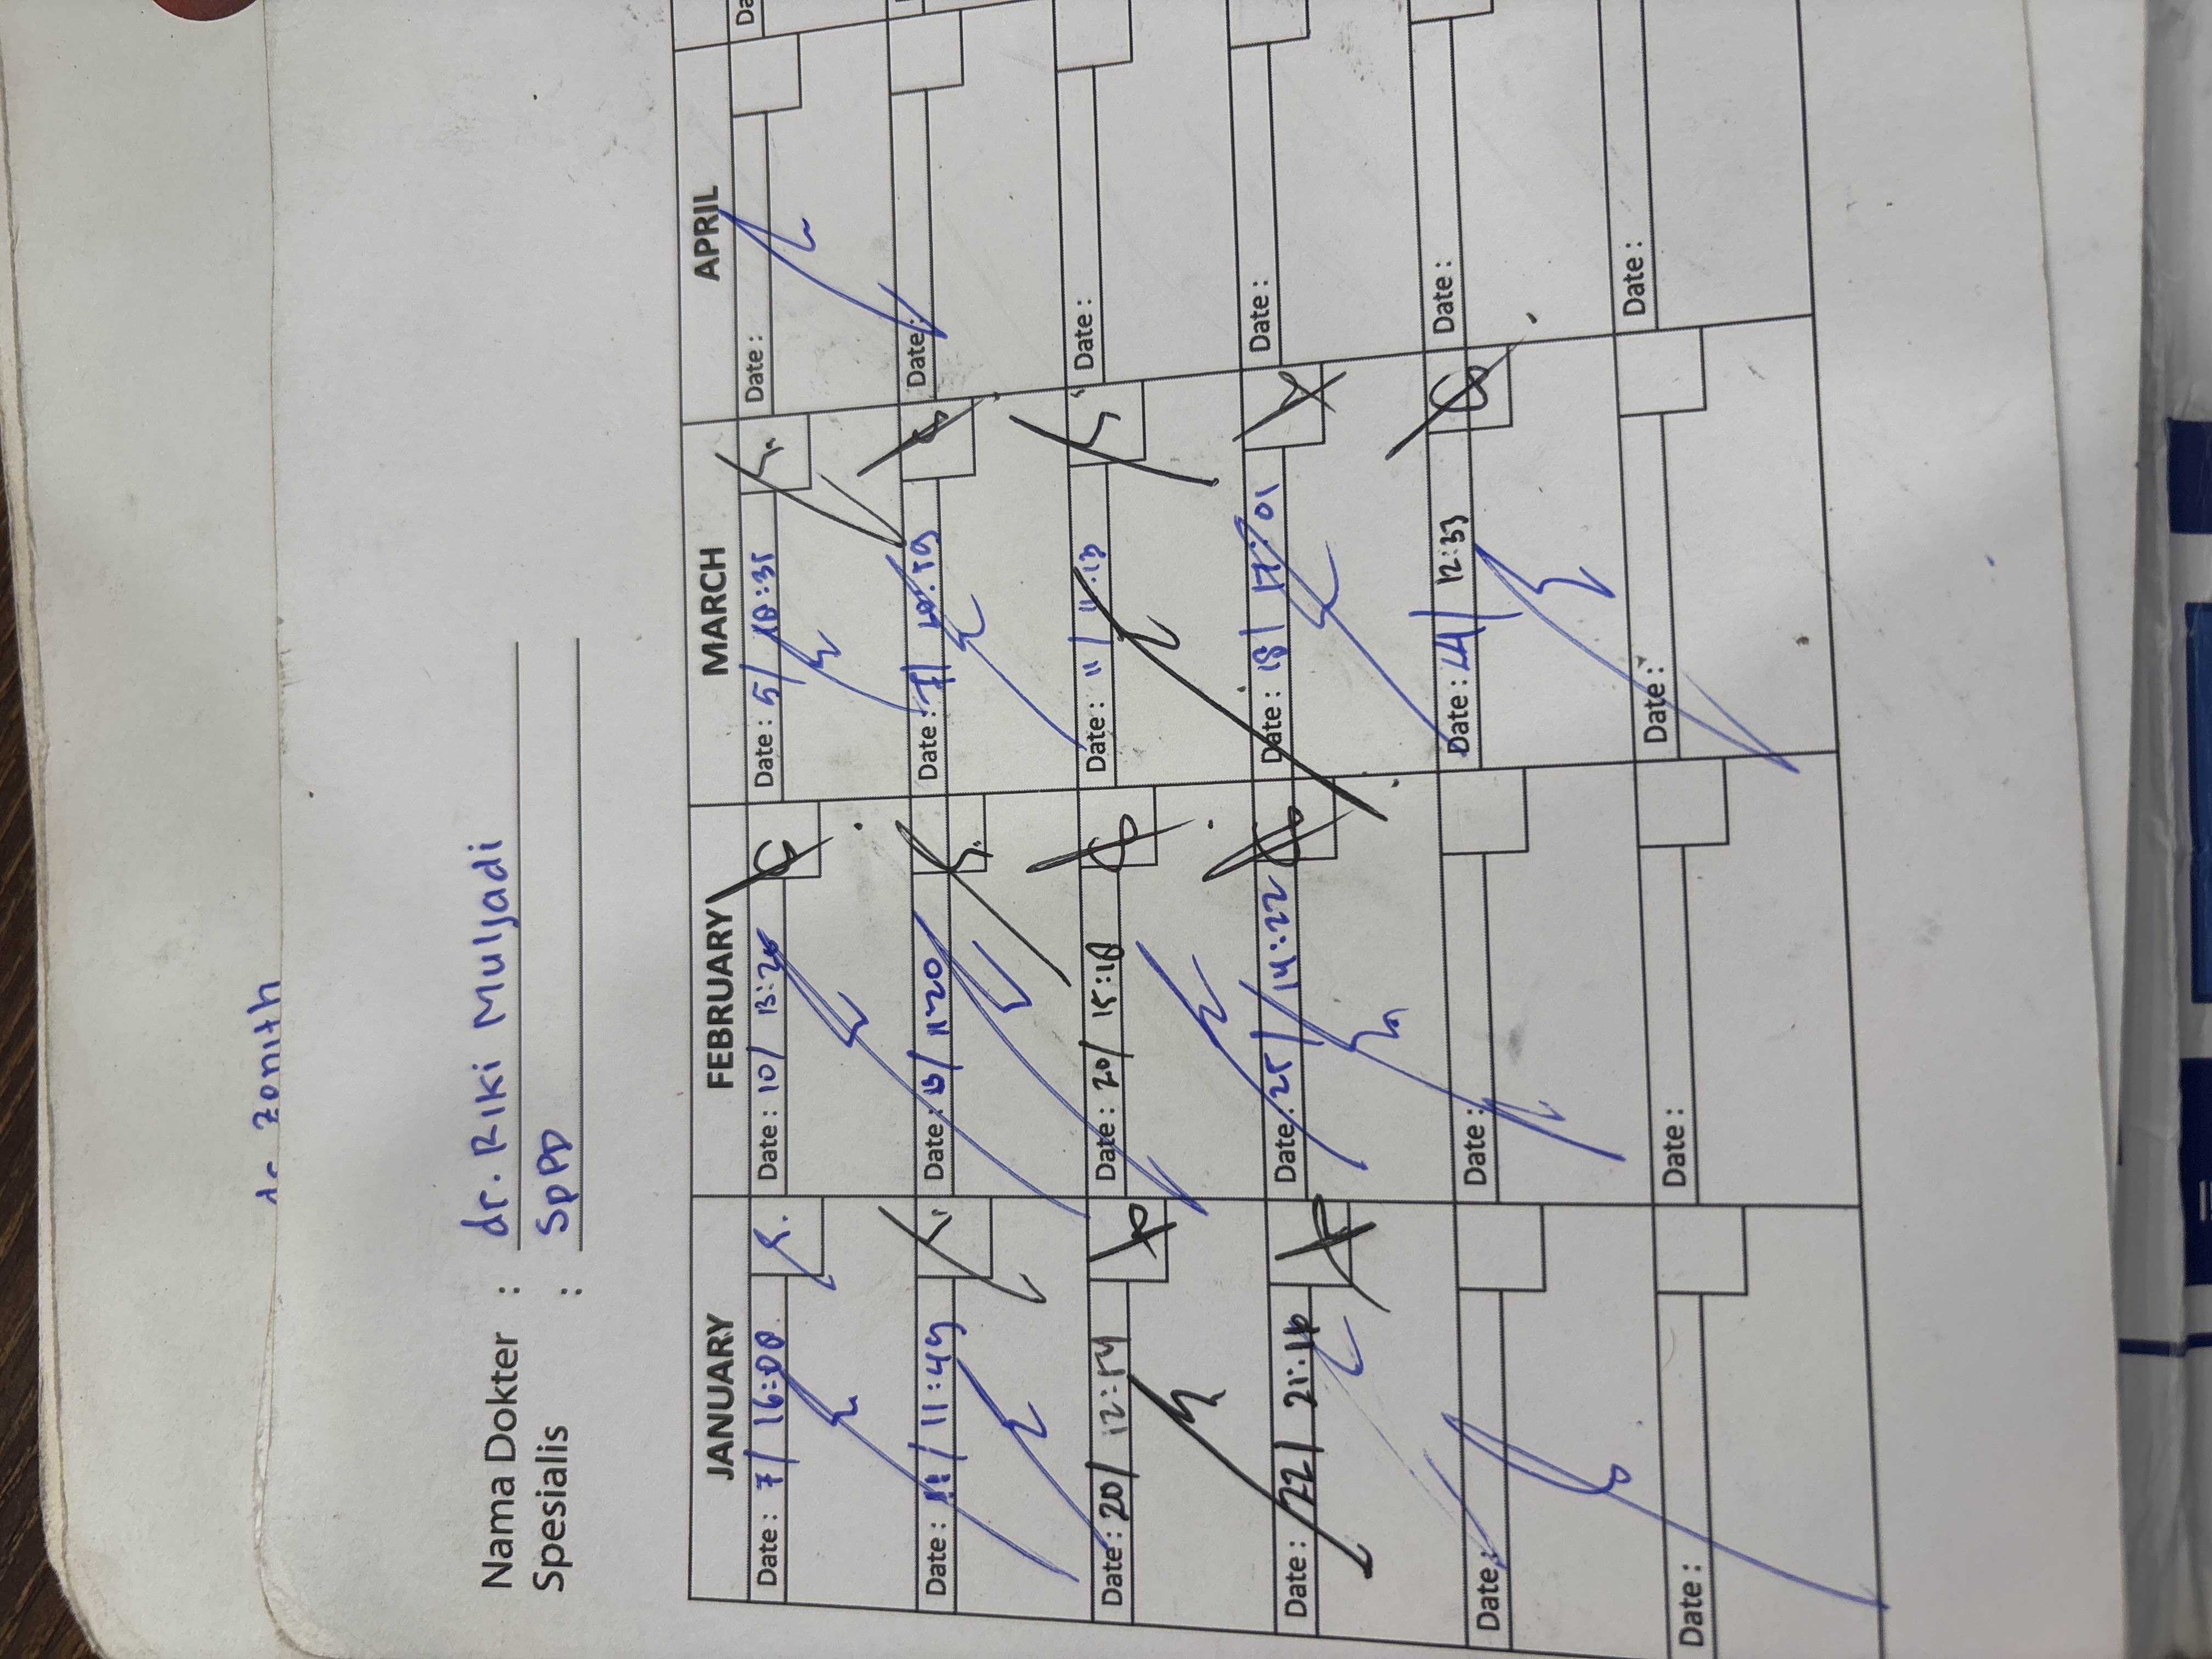 zonith
Nama Dokter : dr. Riki Muljadi
Spesialis : SpPD
JANUARY FEBRUARY MARCH APRIL
Date : 7/ 16:00 Date : 10/ 13:20 Date : 5/ 18:35 Date :
Date : 11:49 Date : 13/ 11:20 Date : 7/ Date :
Date : 20/ 12:54 Date : 20/ 15:18 Date : 11/ 11:13 Date :
Date : 22/ 21:16 Date : 25/ 14:22 Date : 18/ 17:01 Date :
Date : Date : Date : 24/ 12:33 Date :
Date : Date : Date : Date :